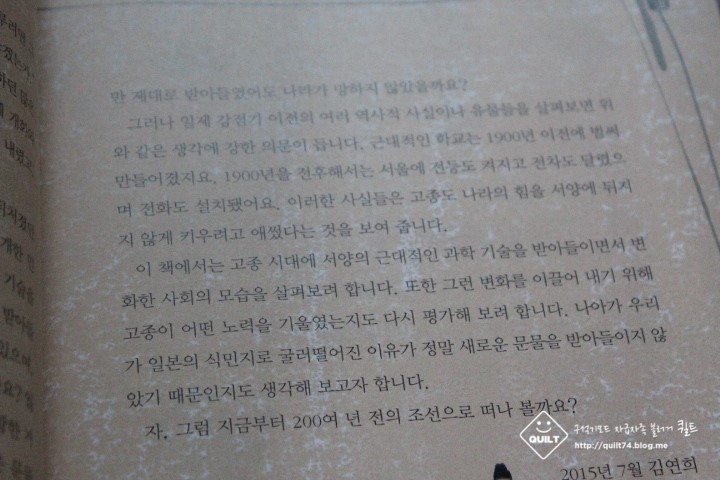 만 제대로 받아들였어도 나라가 망하지 않았을까요?
그러나 일제 강점기 이전의 여러 역사적 사실이나 유물들을 살펴보면 위
와 같은 생각에 강한 의문이 듭니다. 근대적인 학교는 1900년 이전에 벌써
만들어졌지요. 1900년을 전후해서는 서울에 전등도 켜지고 전차도 달렸으
며 전화도 설치됐어요. 이러한 사실들은 고종도 나라의 힘을 서양에 뒤지
지 않게 키우려고 애썼다는 것을 보여 줍니다.
이 책에서는 고종 시대에 서양의 근대적인 과학 기술을 받아들이면서 변
화한 사회의 모습을 살펴보려 합니다. 또한 그런 변화를 이끌어 내기 위해
고종이 어떤 노력을 기울였는지도 다시 평가해 보려 합니다. 나아가 우리
가 일본의 식민지로 굴러떨어진 이유가 정말 새로운 문물을 받아들이지 않
았기 때문인지도 생각해 보고자 합니다.
자, 그럼 지금부터 200여 년 전의 조선으로 떠나 볼까요?
2015년 7월 김연희
QUILT
블로거 퀼트
http://quilt74.blog.me